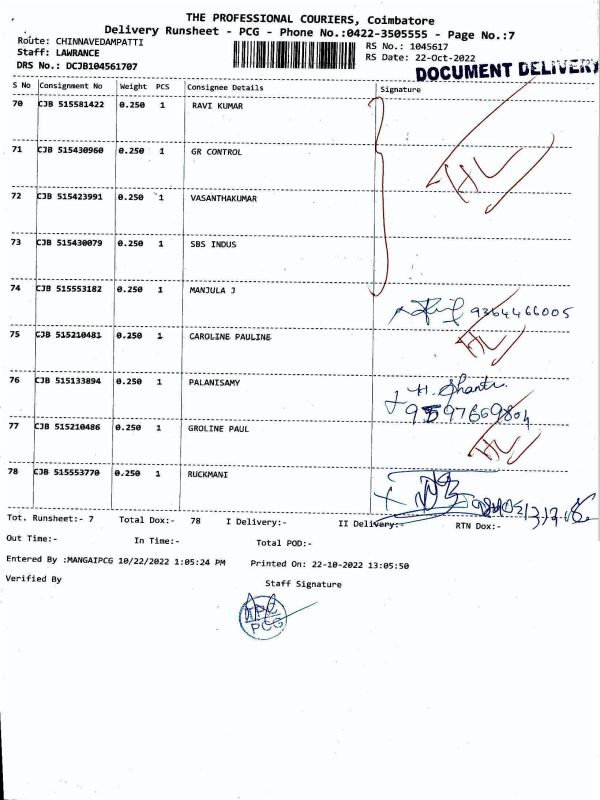 THE PROFESSIONAL COURIERS, Coimbatore
Delivery Runsheet - PCG - Phone No.:0422-3505555 - Page No.:7
Route: CHINNAVEDAMPATTI
Staff: LAWRANCE
DRS No.: DCJB104561707
RS No.: 1045617
RS Date: 22-Oct-2022
DOCUMENT DELIVERY
S No Consignment No Weight PCS Consignee Details Signature
70 CJB 515581422 0.250 1 RAVI KUMAR
HL
71 CJB 515430960 0.250 1 GR CONTROL
72 CJB 515423991 0.250 1 VASANTHAKUMAR
73 CJB 515430079 0.250 1 SBS INDUS
74 CJB 515553182 0.250 1 MANJULA J
9364466005
75 CJB 515210481 0.250 1 CAROLINE PAULINE
HL
76 CJB 515133894 0.250 1 PALANISAMY
H. Shanti
9597669804
77 CJB 515210486 0.250 1 GROLINE PAUL
HL
78 CJB 515553770 0.250 1 RUCKMANI
Tot. Runsheet:- 7 Total Dox:- 78 I Delivery:- II Delivery:- RTN Dox:-
Out Time:- In Time:- Total POD:-
Entered By :MANGAIPCG 10/22/2022 1:05:24 PM Printed On: 22-10-2022 13:05:50
Verified By Staff Signature
TPC
PCG